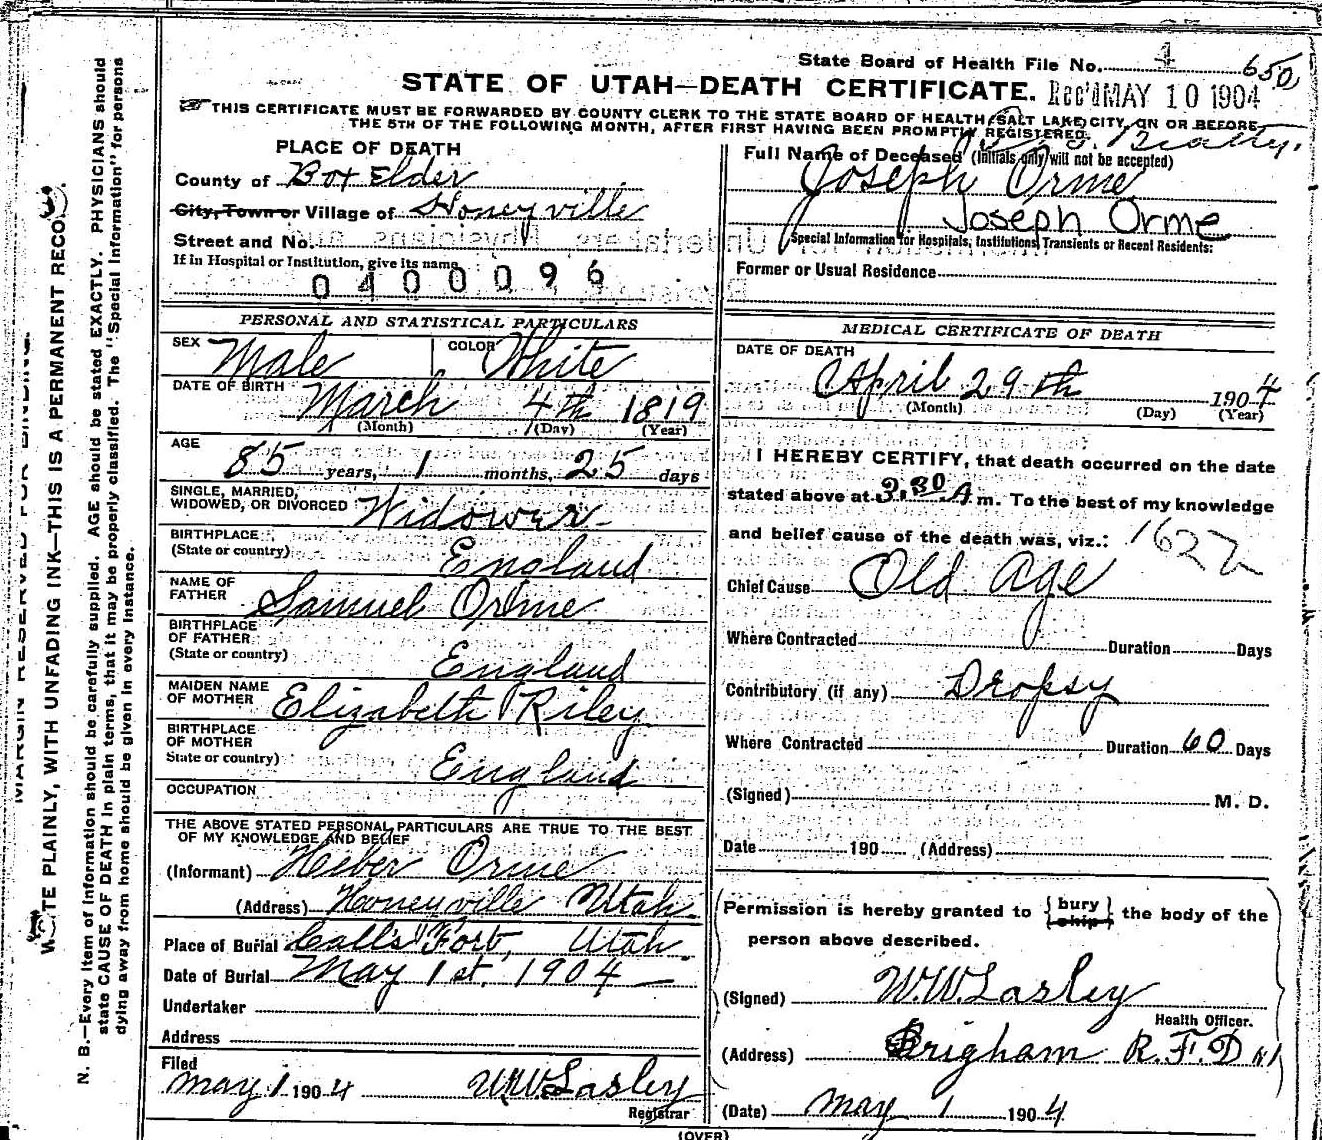 State Board of Health File No. 4 650
STATE OF UTAH—DEATH CERTIFICATE. Rec'd MAY 10 1904
THIS CERTIFICATE MUST BE FORWARDED BY COUNTY CLERK TO THE STATE BOARD OF HEALTH, SALT LAKE CITY, ON OR BEFORE
THE 5TH OF THE FOLLOWING MONTH, AFTER FIRST HAVING BEEN PROMPTLY REGISTERED.
PLACE OF DEATH
County of Box Elder
City, Town or Village of Honeyville
Street and No.
If in Hospital or Institution, give its name
0400096
Full Name of Deceased (Initials only will not be accepted)
Joseph Orme
Joseph Orme
Special Information for Hospitals, Institutions, Transients or Recent Residents:
Former or Usual Residence
PERSONAL AND STATISTICAL PARTICULARS
SEX Male COLOR White
DATE OF BIRTH March 4th 1819
(Month) (Day) (Year)
AGE 85 years, 1 months, 25 days
SINGLE, MARRIED,
WIDOWED, OR DIVORCED Widower
BIRTHPLACE
(State or country) England
NAME OF
FATHER Samuel Orme
BIRTHPLACE
OF FATHER
(State or country) England
MAIDEN NAME
OF MOTHER Elizabeth Riley
BIRTHPLACE
OF MOTHER
State or country) England
OCCUPATION
THE ABOVE STATED PERSONAL PARTICULARS ARE TRUE TO THE BEST
OF MY KNOWLEDGE AND BELIEF
(Informant) Heber Orme
(Address) Honeyville Utah
Place of Burial Call's Fort, Utah
Date of Burial May 1st, 1904
Undertaker
Address
Filed
May 1 1904 W.W. Lasley
Registrar
MEDICAL CERTIFICATE OF DEATH
DATE OF DEATH
April 29th 1904
(Month) (Day) (Year)
I HEREBY CERTIFY, that death occurred on the date
stated above at 3:30 A m. To the best of my knowledge
and belief cause of the death was, viz.: 1622
Chief Cause Old Age
Where Contracted Duration Days
Contributory (if any) Dropsy
Where Contracted Duration 60 Days
(Signed) M. D.
Date 190 (Address)
Permission is hereby granted to { bury
ship } the body of the
person above described.
(Signed) W.W. Lasley
Health Officer.
(Address) Brigham R.F.D. #1
(Date) May 1 1904
(OVER)
MARGIN RESERVED FOR BINDING.
WRITE PLAINLY, WITH UNFADING INK—THIS IS A PERMANENT RECORD.
N. B.—Every item of information should be carefully supplied. AGE should be stated EXACTLY. PHYSICIANS should
state CAUSE OF DEATH in plain terms, that it may be properly classified. The "Special Information" for persons
dying away from home should be given in every instance.